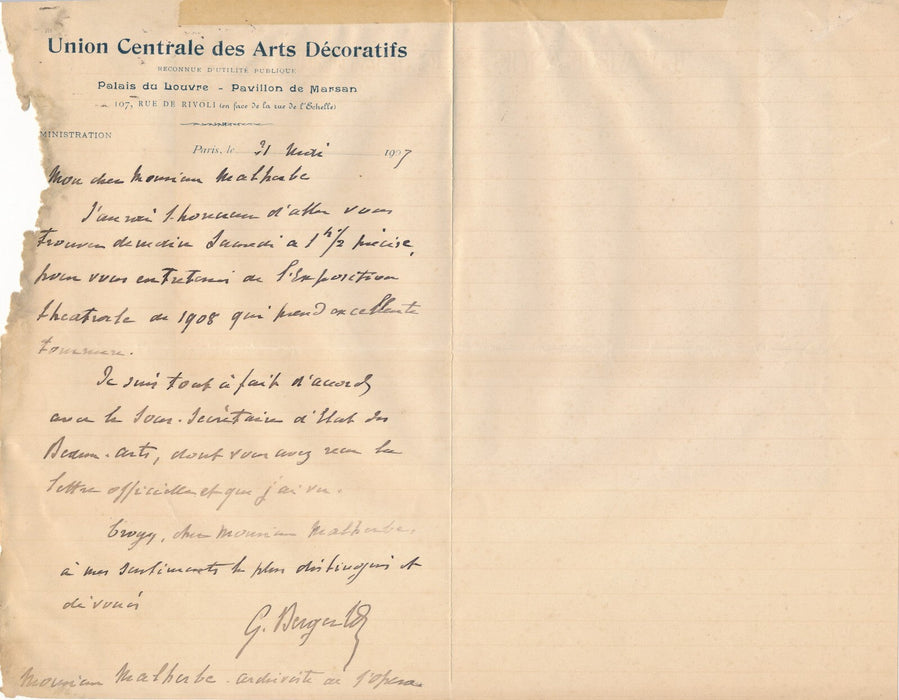 Union Centrale des Arts Décoratifs
RECONNUE D'UTILITÉ PUBLIQUE
Palais du Louvre - Pavillon de Marsan
107, RUE DE RIVOLI (en face de la rue de l'Echelle)
MINISTRATION
Paris, le 31 Mai 1907
Mon cher Monsieur Malherbe
J'aurai l'honneur d'aller vous
trouver demain Samedi à 1 h 1/2 précise,
pour vous entretenir de l'Exposition
théatrale de 1908 qui prend excellente
tournure.
Je suis tout à fait d'accord
avec le Sous-Secrétaire d'Etat des
Beaux-arts, dont vous avez reçu la
lettre officielle et que j'ai vu.
Croyez, cher Monsieur Malherbe,
à mes sentiments les plus distingués et
dévoués
G. Berger
Monsieur Malherbe - archiviste de l'opera